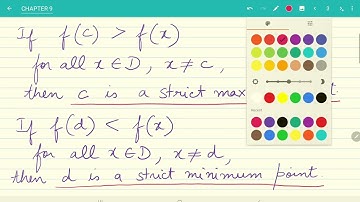 CHAPTER 9
If f(c) > f(x)
for all x ∈ D, x ≠ c,
then c is a strict max
If f(d) < f(x)
for all x ∈ D, x ≠ d,
then d is a strict minimum point.